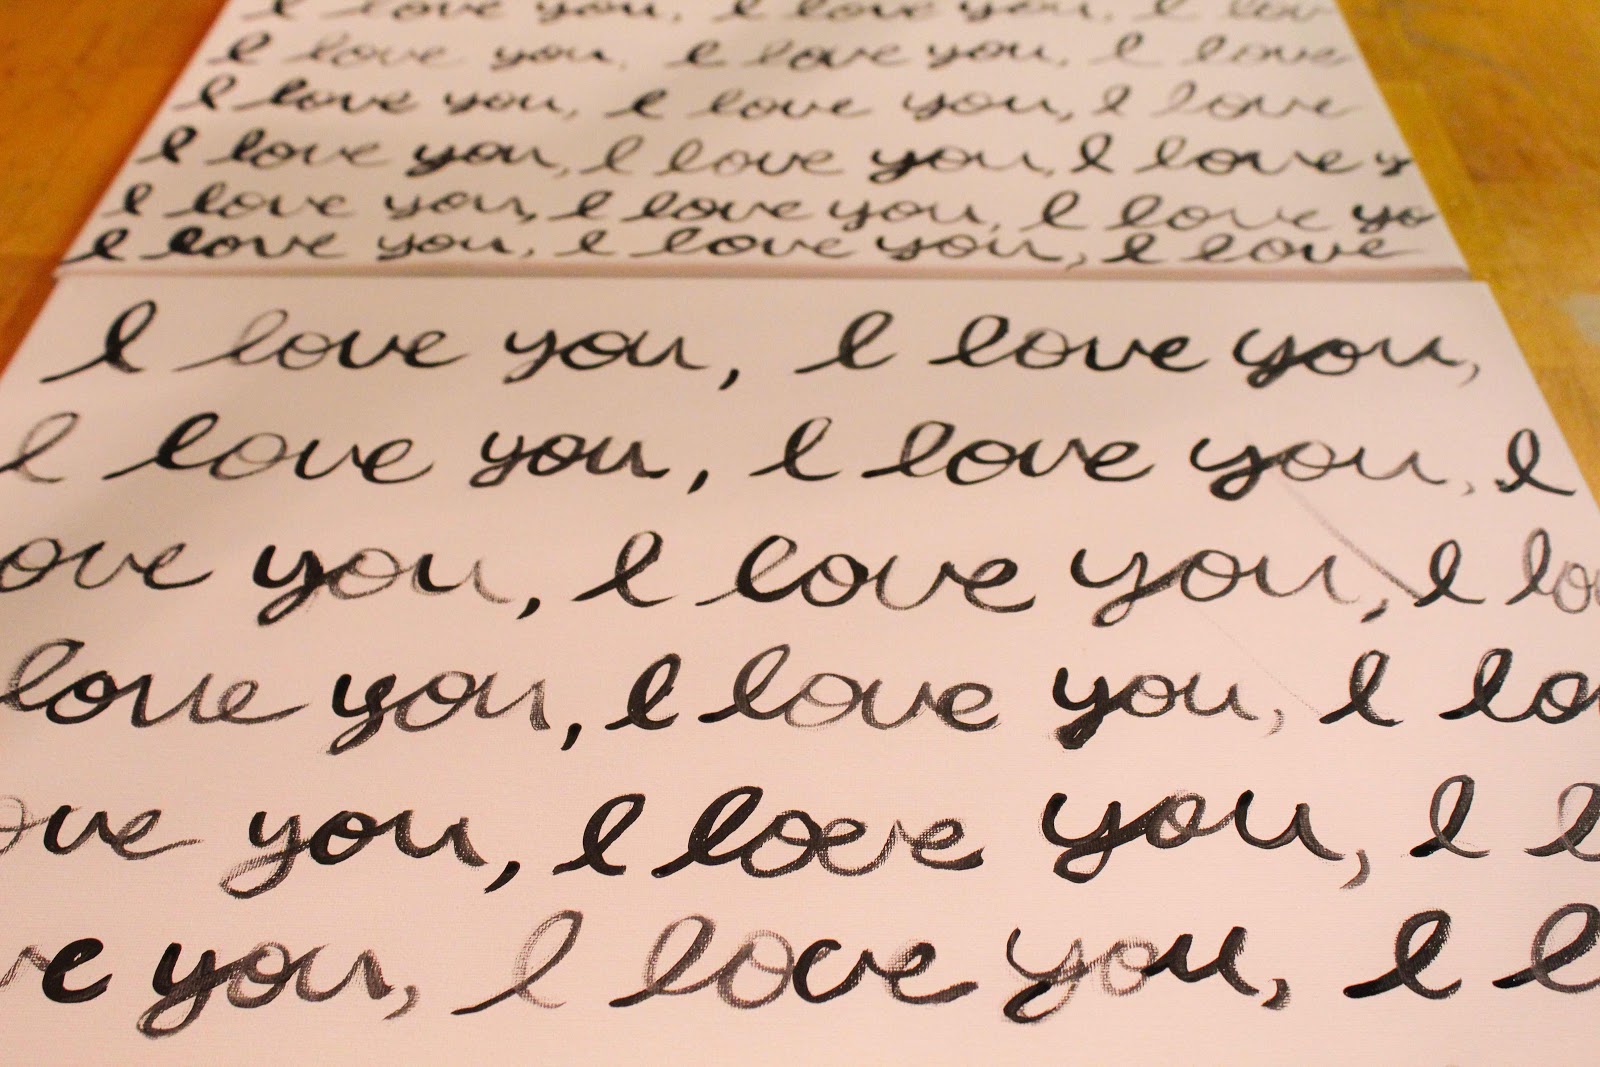 I love you, I love you, I lov
I love you, I love you, I love
I love you, I love you, I love
I love you, I love you, I love y
I love you, I love you, I love yo
I love you, I love you, I love
I love you, I love you,
I love you, I love you, I
ove you, I love you, I lo
love you, I love you, I lo
ove you, I love you, I l
ve you, I love you, I l